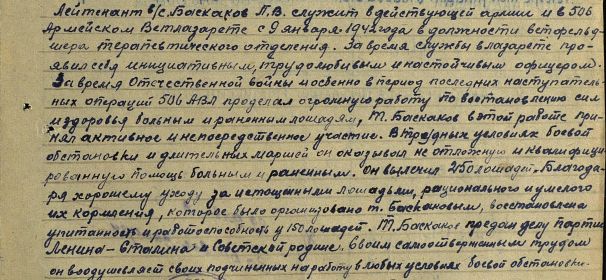 Лейтенант в/с. Баскаков П.В. служит в действующей армии и в 506
Армейском Ветлазарете с 9 января 1942 года в должности ветфельд-
шера терапевтического отделения. За время службы в лазарете про-
явил себя инициативным, трудолюбивым и настойчивым офицером.
За время Отечественной войны и особенно в период последних наступатель-
ных операций 506 АВЛ проделал огромную работу по востановлению сил
и здоровья больным и раненным лошадям, т. Баскаков в этой работе при-
нял активное и непосредственное участие. В трудных условиях боевой
обстановки и длительных маршей он оказывал не отложную и квалифици-
рованную помощь больным и раненным. Он вылечил 250 лошадей. Благода-
ря хорошему уходу за истощенными лошадьми, рационального и умелого
их кормления, которое было организовано т. Баскаковым, востановлена
упитанность и работоспособность у 150 лошадей. Т. Баскаков предан делу партии
Ленина-Сталина и Советской родине. Своим самоотверженным трудом
он воодушевляет своих подчиненных на работу в любых условиях боевой обстановки.